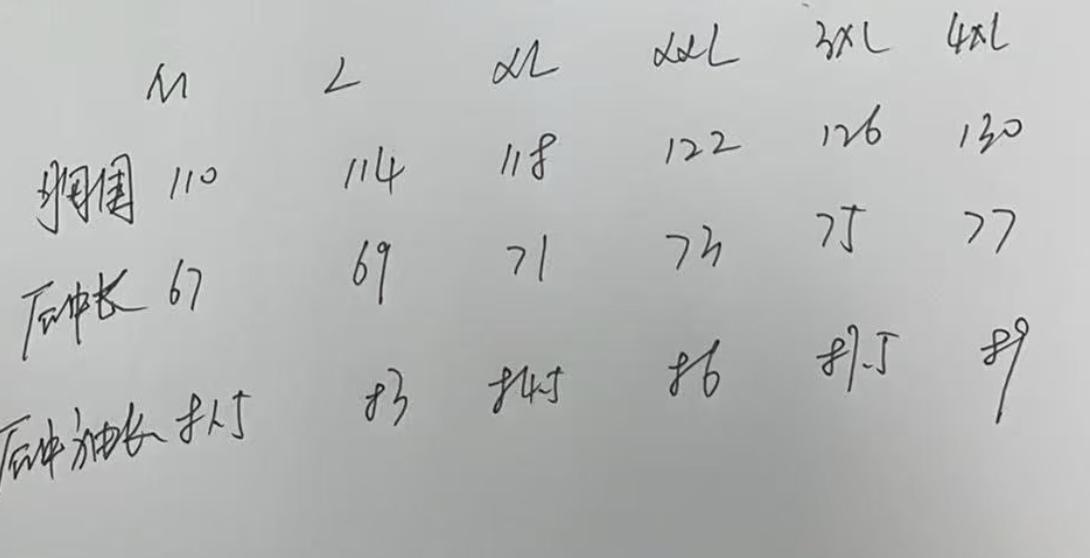 M L XL XXL 3XL 4XL
胸围 110 114 118 122 126 130
后中长 67 69 71 73 75 77
后中袖长 81.5 83 84.5 86 87.5 89